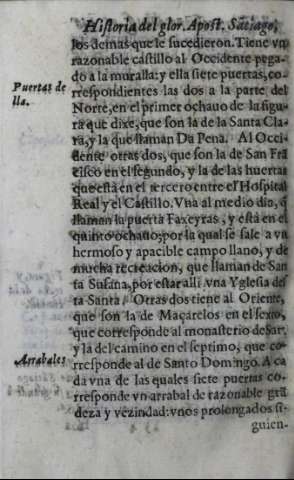 Historia del glor. Apost. Sãtiago,
los demas que le sucedieron. Tiene vn
razonable castillo al Occidente pega-
do a la muralla: y ella siete puertas, co-
Puertas de
lla.
rrespondientes las dos a la parte del
Norte, en el primer ochauo de la figu
ra que dixe, que son la de la Santa Cla
ra, y la que llaman Da Pena. Al Occi-
dente otras dos, que son la de San Frã
cisco en el segundo, y la de las huertas
que està en el tercero entre el Hospital
Real y el Castillo. Vna al medio dia, q̃
llaman la puerta Faxeyras, y està en el
quinto ochauo; por la qual se sale a vn
hermoso y apacible campo llano, y de
mucha recreacion, que llaman de San
ta Susana, por estar alli vna Yglesia des
ta Santa. Otras dos tiene al Oriente,
que son la de Maçarelos en el sexto,
que corresponde al monasterio de Sar,
y la del camino en el septimo, que co-
Arrabales
rresponde al de Santo Domingo. A ca
da vna de las quales siete puertas co-
rresponde vn arrabal de razonable grã
deza y vezindad: vnos prolongados si-
guien-